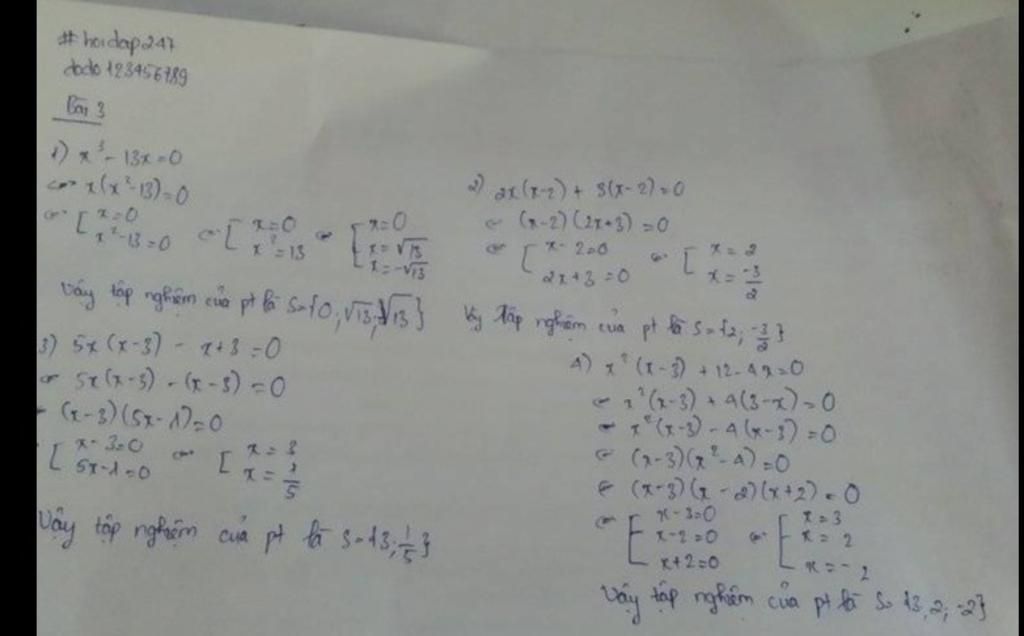 #hoidap247
dodo123456789
Bài 3
1) x³ - 13x = 0
⇔ x(x² - 13) = 0
⇔ [ x = 0
x² - 13 = 0 ⇔ [ x = 0
x² = 13 ⇔ [ x = 0
x = √13
x = -√13
Vậy tập nghiệm của pt là S = {0; √13; -√13}
2) 2x(x-2) + 3(x-2) = 0
⇔ (x-2)(2x+3) = 0
⇔ [ x - 2 = 0
2x + 3 = 0 ⇔ [ x = 2
x = -3/2
Vậy tập nghiệm của pt là S = {2; -3/2}
3) 5x(x-3) - x + 3 = 0
⇔ 5x(x-3) - (x-3) = 0
⇔ (x-3)(5x-1) = 0
[ x - 3 = 0
5x - 1 = 0 ⇔ [ x = 3
x = 1/5
Vậy tập nghiệm của pt là S = {3; 1/5}
4) x²(x-3) + 12 - 4x = 0
⇔ x²(x-3) + 4(3-x) = 0
⇔ x²(x-3) - 4(x-3) = 0
⇔ (x-3)(x²-4) = 0
⇔ (x-3)(x-2)(x+2) = 0
⇔ [ x - 3 = 0
x - 2 = 0
x + 2 = 0 ⇔ [ x = 3
x = 2
x = -2
Vậy tập nghiệm của pt là S = {3, 2; -2}